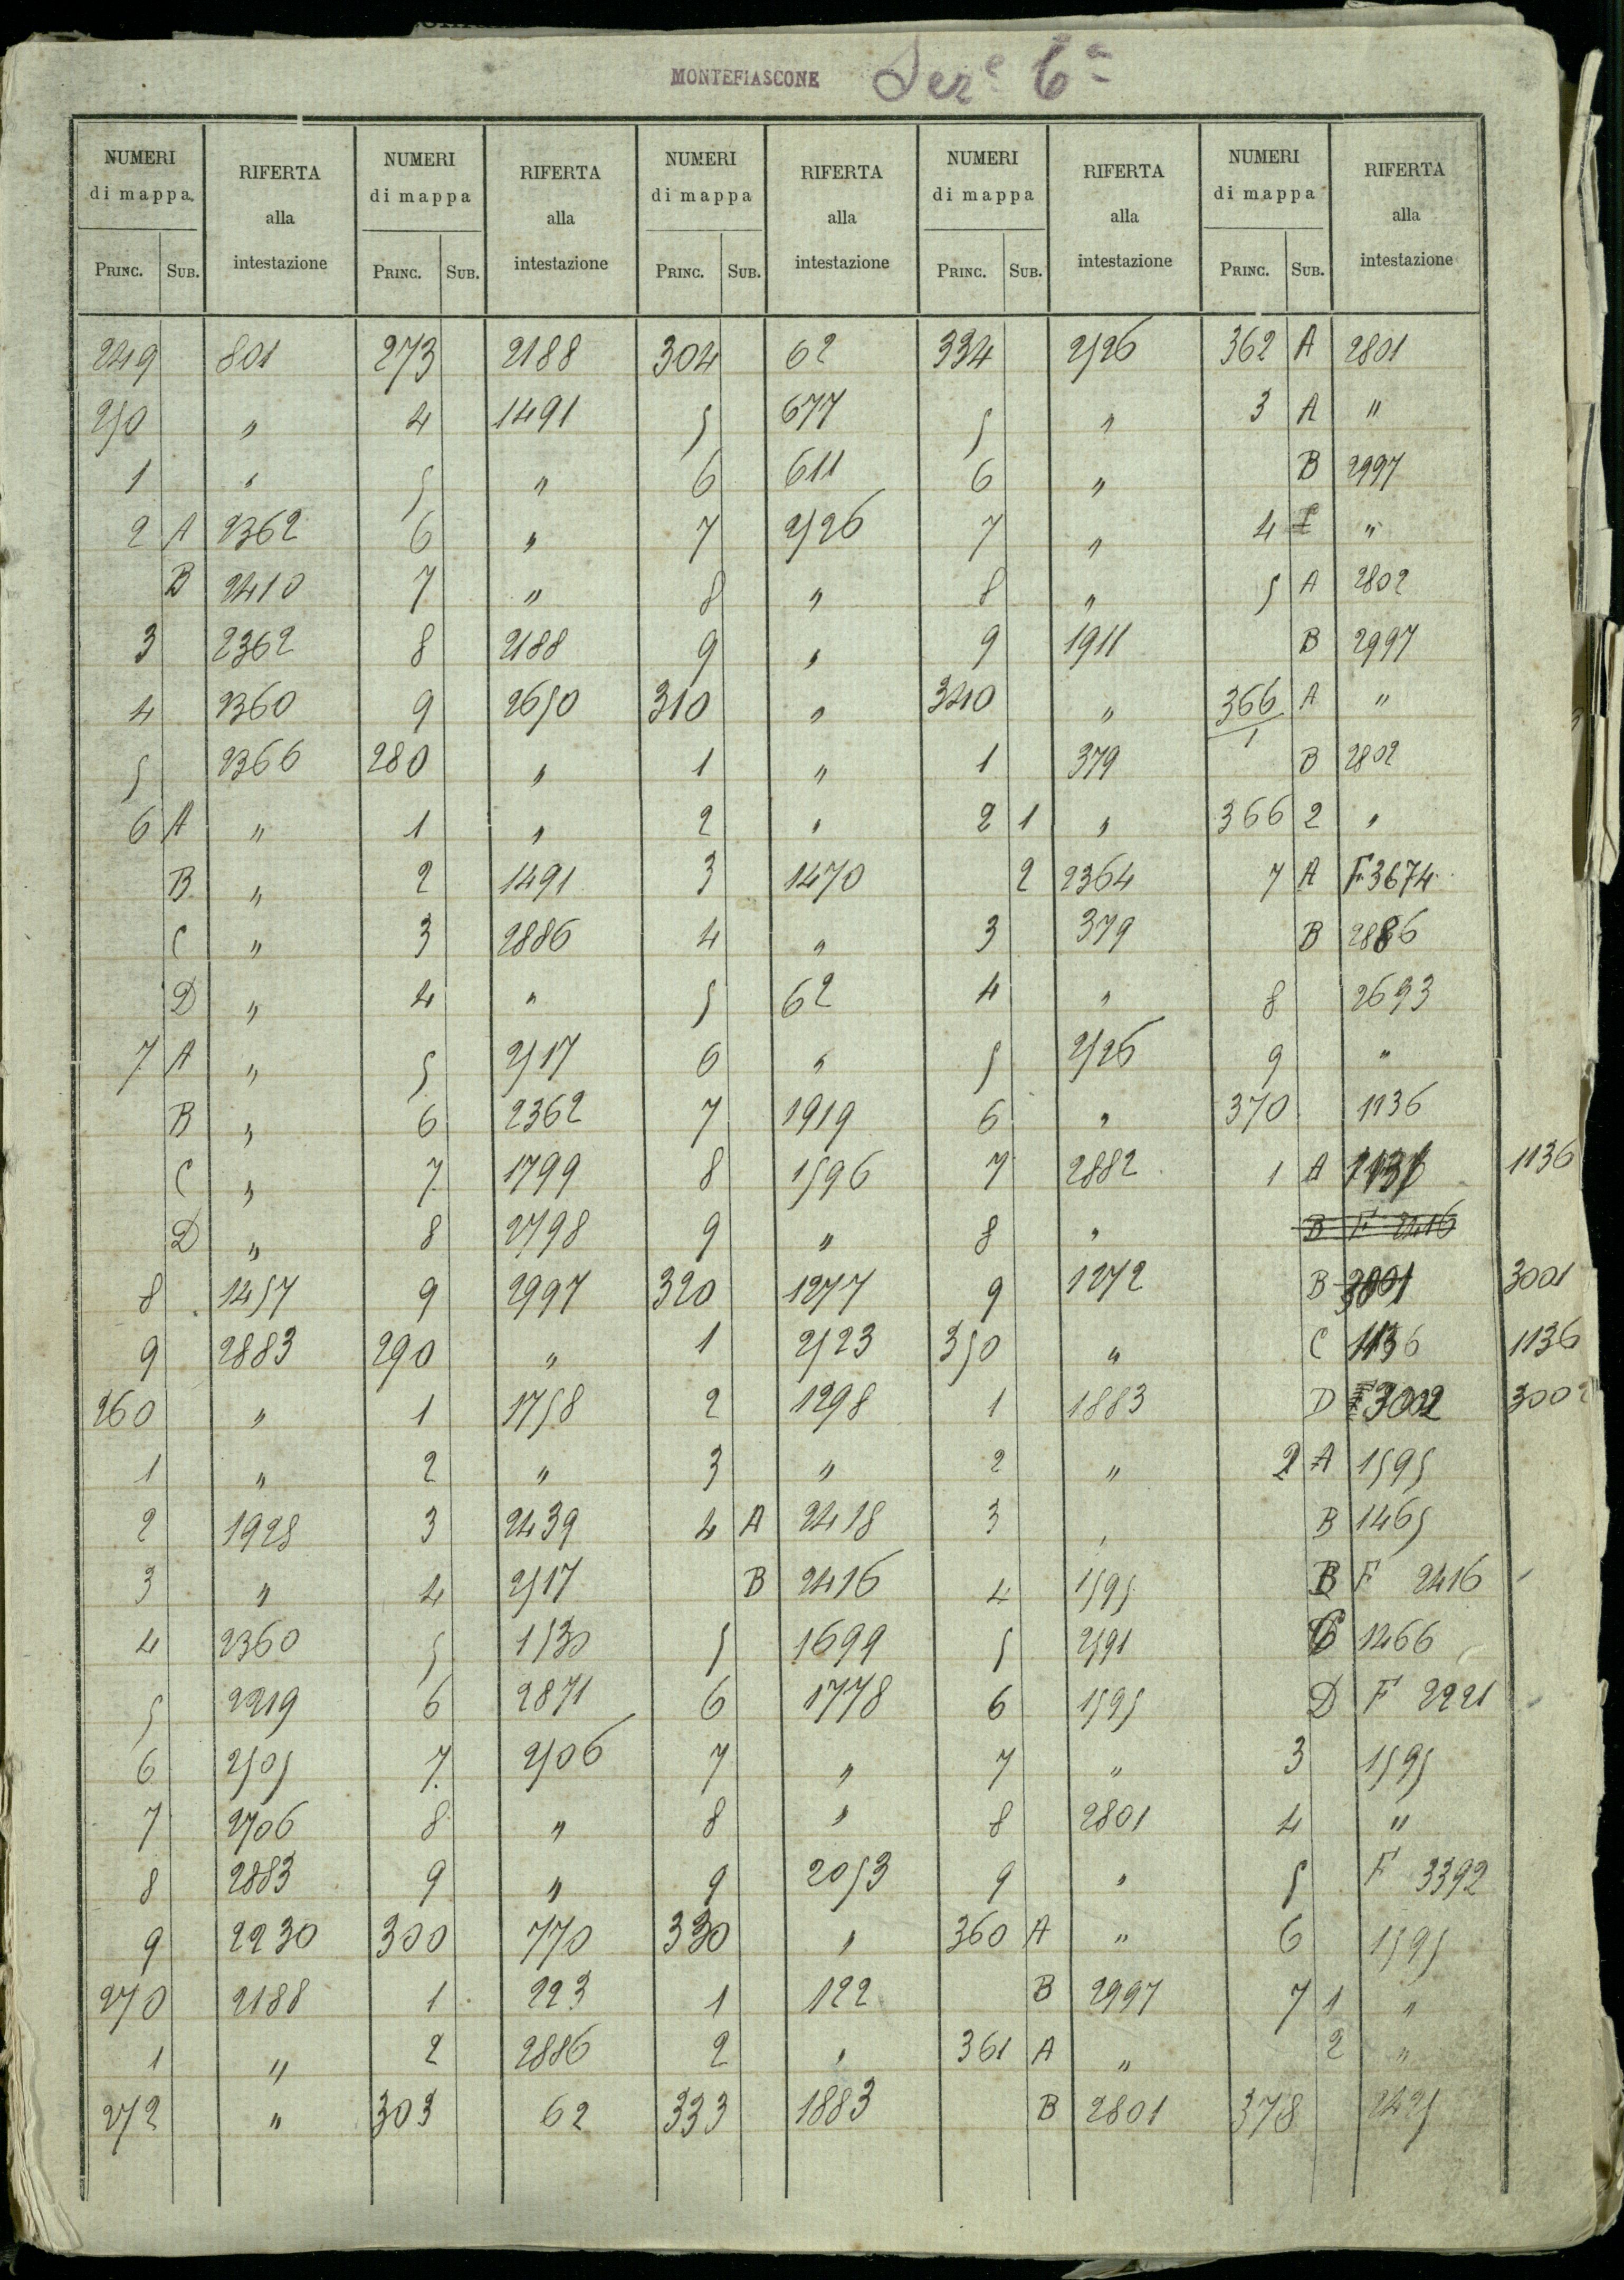 MONTEFIASCONE Sez.e 6a
NUMERI di mappa RIFERTA alla intestazione NUMERI di mappa RIFERTA alla intestazione NUMERI di mappa RIFERTA alla intestazione NUMERI di mappa RIFERTA alla intestazione NUMERI di mappa RIFERTA alla intestazione
PRINC. SUB. PRINC. SUB. PRINC. SUB. PRINC. SUB. PRINC. SUB.
249 801 273 2188 304 62 334 2526 362 A 2801
250 " 4 1491 5 677 5 " 3 A "
1 " 5 " 6 611 6 " B 2997
2 A 2362 6 " 7 2526 7 " 4 "
B 2410 7 " 8 " 8 " 5 A 2802
3 2362 8 2188 9 " 9 1911 B 2997
4 2360 9 2650 310 " 340 " 366/1 A "
5 2366 280 " 1 " 1 379 B 2802
6 A " 1 " 2 " 2 1 " 366 2 "
B " 2 1491 3 1470 2 2364 7 A F 3674
C " 3 2886 4 " 3 379 B 2886
D " 4 " 5 62 4 " 8 2693
7 A " 5 2517 6 " 5 2526 9 "
B " 6 2362 7 1919 6 " 370 1136
C " 7 1799 8 1596 7 2882 1 A 1136
D " 8 2798 9 " 8 " B F 2416
8 1457 9 2997 320 1277 9 1272 B 3001 3001
9 2883 290 " 1 2523 350 " C 1136 1136
260 " 1 1758 2 1298 1 1883 D 3002 3002
1 " 2 " 3 " 2 " 2 A 1595
2 1928 3 2439 4 A 2418 3 " B 1465
3 " 4 2517 B 2416 4 1595 B F 2416
4 2360 5 1530 5 1699 5 2591 C 1466
5 2219 6 2871 6 1778 6 1595 D F 2221
6 2505 7 2506 7 " 7 " 3 1595
7 2706 8 " 8 " 8 2801 4 "
8 2883 9 " 9 2053 9 " 5 F 3392
9 2230 300 770 330 " 360 A " 6 1595
270 2188 1 223 1 122 B 2997 7 1 "
1 " 2 2886 2 " 361 A " 2 "
272 " 303 62 333 1883 B 2801 378 2425